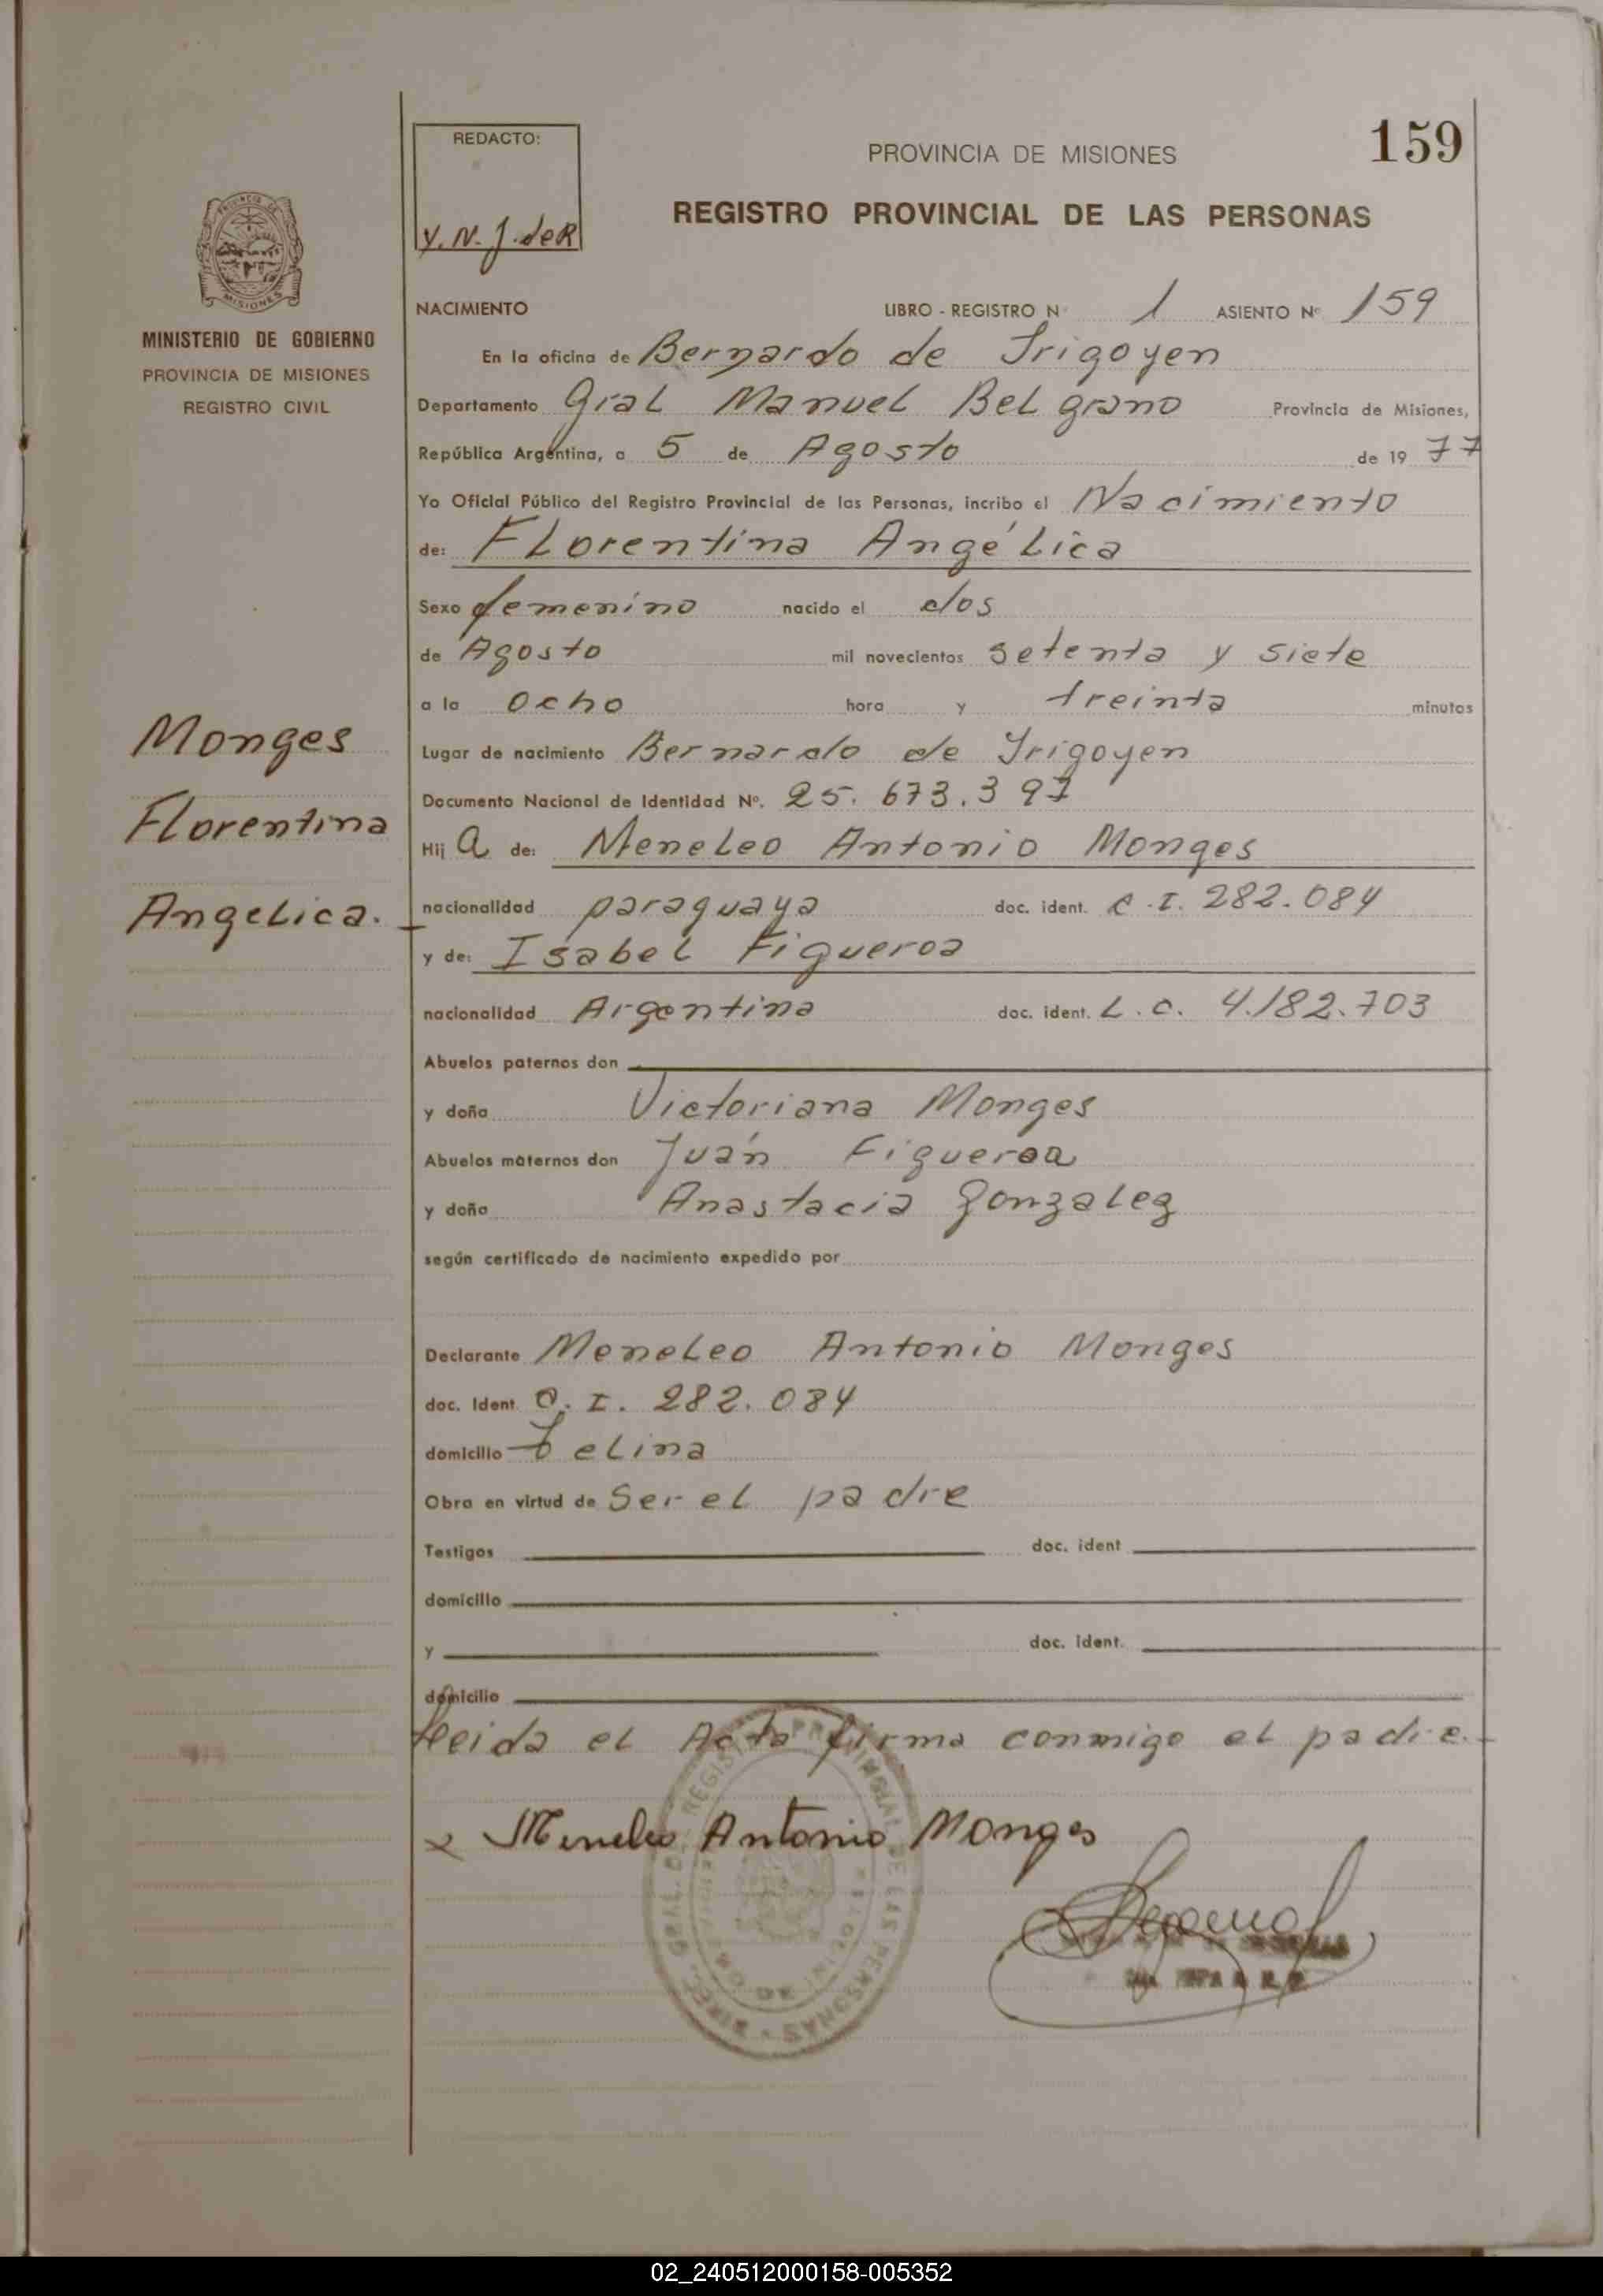 159
REDACTO:
Y. N. J. de R
PROVINCIA DE MISIONES
REGISTRO PROVINCIAL DE LAS PERSONAS
MISIONES
MINISTERIO DE GOBIERNO
PROVINCIA DE MISIONES
REGISTRO CIVIL
NACIMIENTO LIBRO - REGISTRO Nº 1 ASIENTO Nº 159
En la oficina de Bernardo de Irigoyen
Departamento Gral Manuel Belgrano Provincia de Misiones,
República Argentina, a 5 de Agosto de 19 77
Yo Oficial Público del Registro Provincial de las Personas, incribo el Nacimiento
de: Florentina Angélica
Sexo femenino nacido el dos
de Agosto mil novecientos setenta y siete
a la ocho hora y treinta minutos
Lugar de nacimiento Bernardo de Irigoyen
Documento Nacional de Identidad Nº. 25.673.397
Hij a de: Meneleo Antonio Monges
nacionalidad paraguaya doc. ident. C.I. 282.084
y de: Isabel Figueroa
nacionalidad Argentina doc. ident. L.C. 4.182.703
Monges
Florentina
Angelica.
Abuelos paternos don
y doña Victoriana Monges
Abuelos maternos don Juán Figueroa
y doña Anastacia Gonzalez
según certificado de nacimiento expedido por
Declarante Meneleo Antonio Monges
doc. Ident. C.I. 282.084
domicilio
Obra en virtud de Ser el padre
Testigos doc. ident
domicilio
y doc. ident.
domicilio
Leida el Acta firma conmigo el padre.
x Meneleo Antonio Monges
02_240512000158-005352